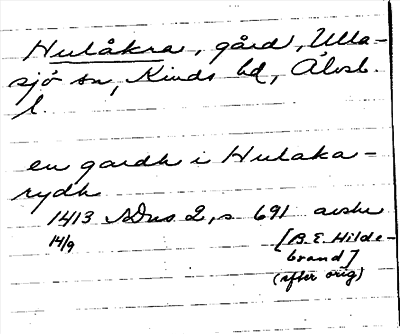 Hulåkra, gård, Ulla-
sjö sn, Kinds hd, Älvsb.
l.
en gardh i Hulaka-
rydh
1413 SDns 2, s. 691 avskr
14/9 [B. E. Hilde-
brand]
(efter orig)